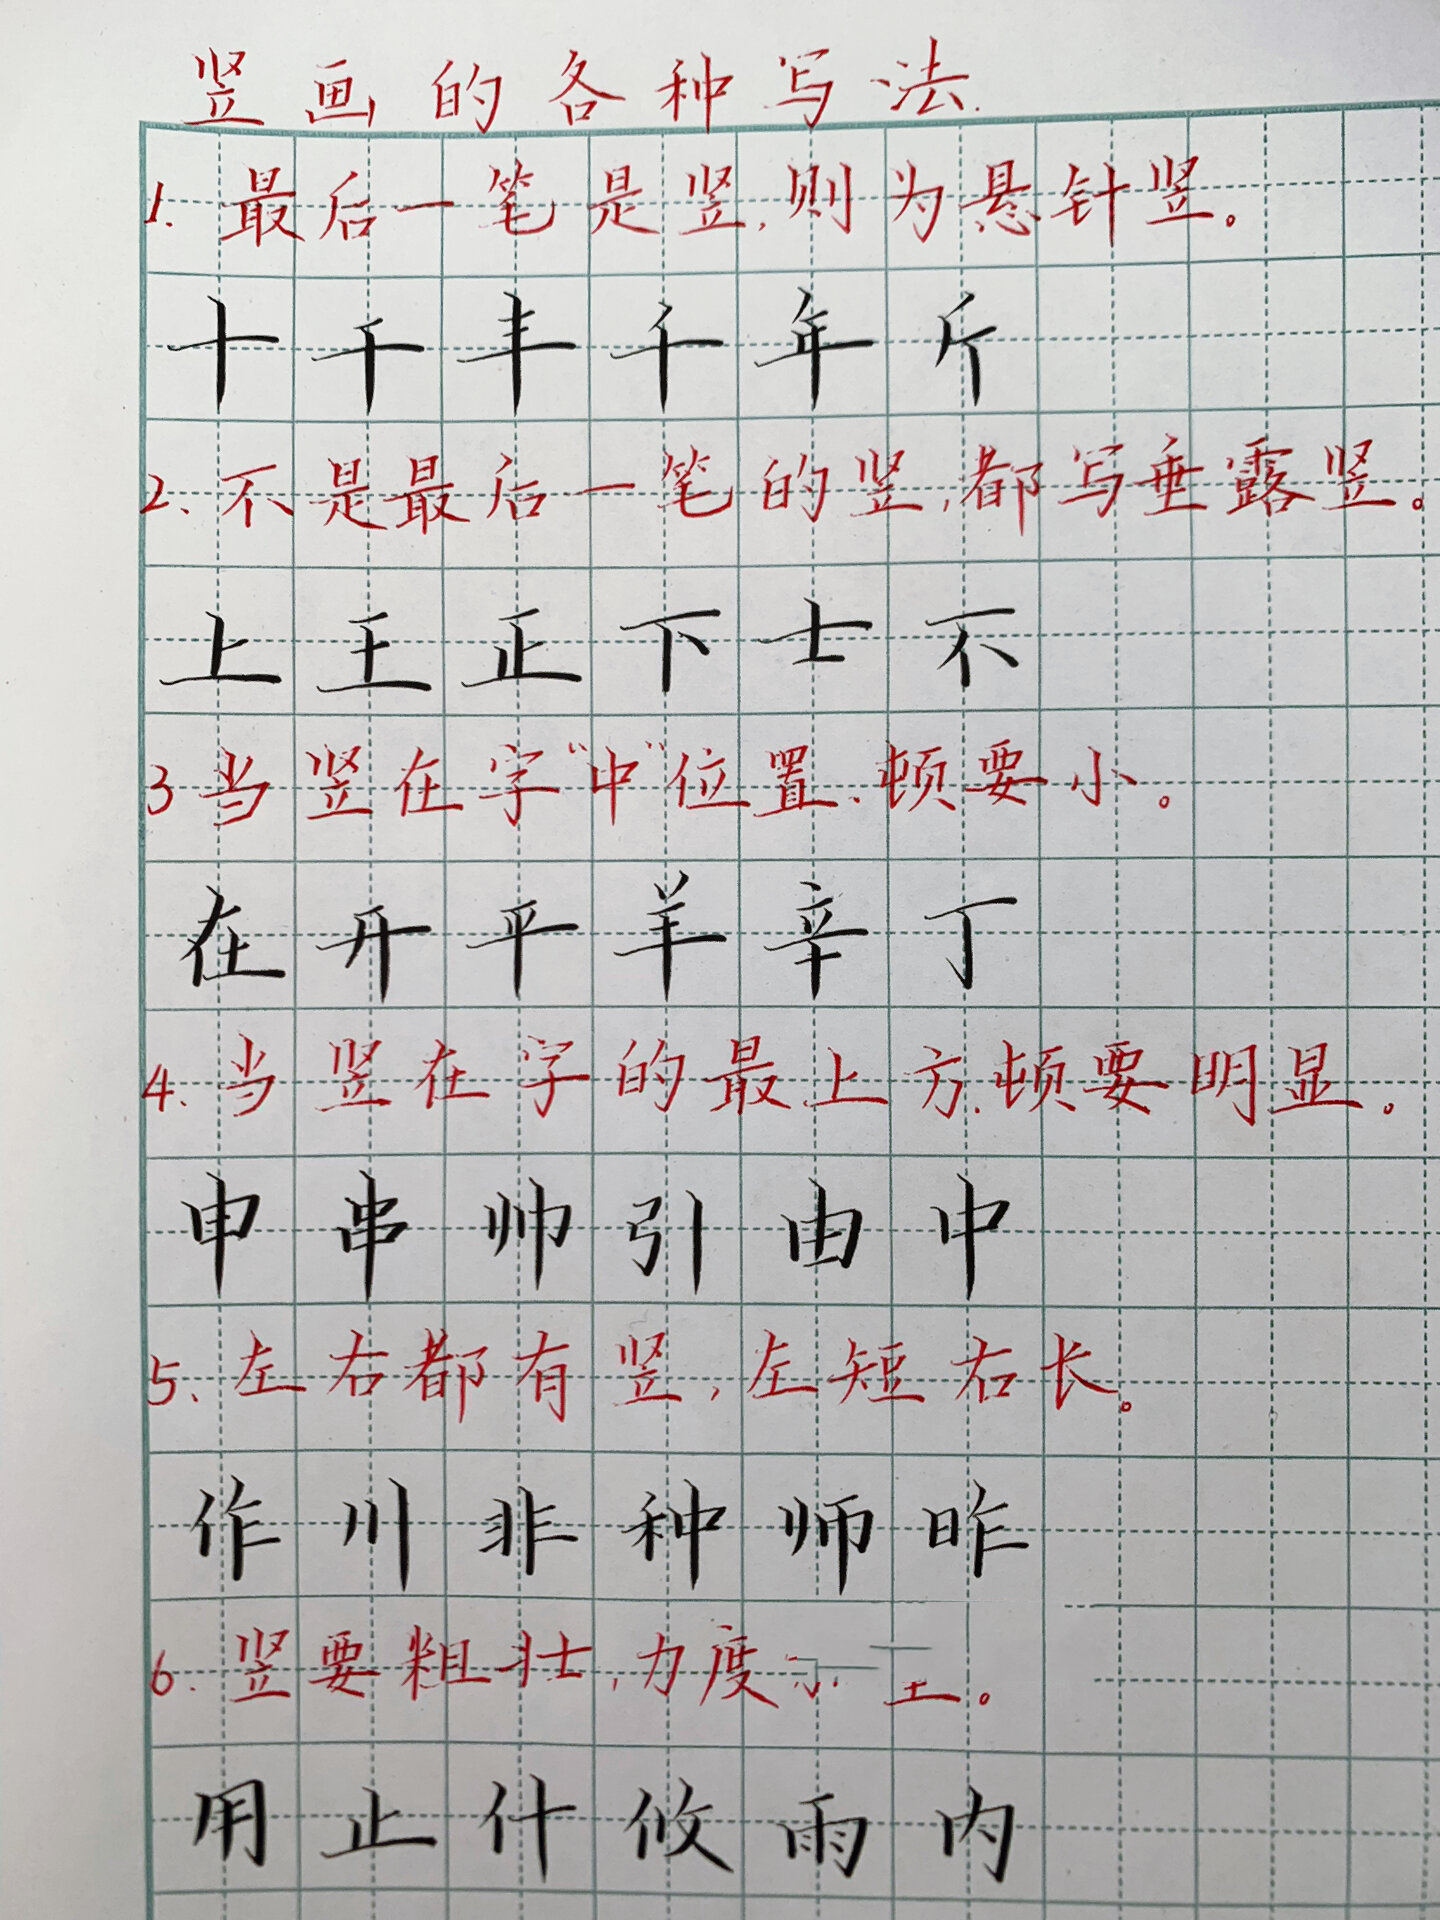 竖画的各种写法.
1. 最后一笔是竖,则为悬针竖。
十干丰千年斤
2、不是最后一笔的竖,都写垂露竖。
上王正下士不
3 当竖在字“中”位置、顿要小。
在开平羊辛丁
4. 当竖在字的最上方.顿要明显。
申串帅引由中
5、左右都有竖,左短右长。
作川非种师昨
6. 竖要粗壮,力度。
用止什攸雨内